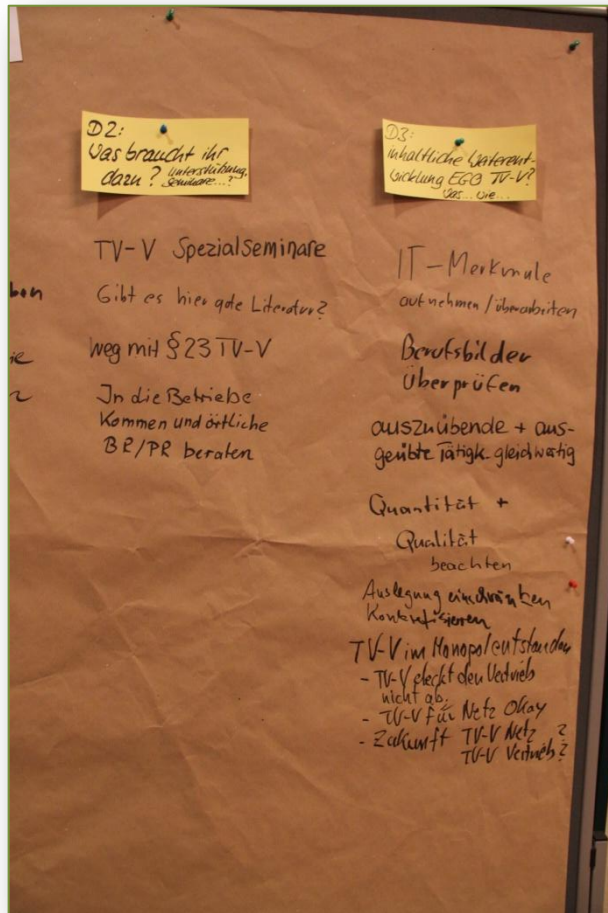 D2:
Was braucht ihr
dazu? Unterstützung,
Seminare...?
TV-V Spezialseminare
Gibt es hier gute Literatur?
weg mit § 23 TV-V
In die Betriebe
Kommen und örtliche
BR/PR beraten
D3:
inhaltliche Weiterent-
wicklung EGO TV-V?
Was... wie...
IT-Merkmale
aufnehmen / überarbeiten
Berufsbilder
Überprüfen
auszuübende + aus-
geübte Tätigk. gleichwertig
Quantität +
Qualität
beachten
Auslegung einschränken
Konkretisieren
TV-V im Monopol entstanden
- TV-V deckt den Vertrieb
nicht ab.
- TV-V für Netz Okay
- Zukunft TV-V Netz ?
TV-V Vertrieb?